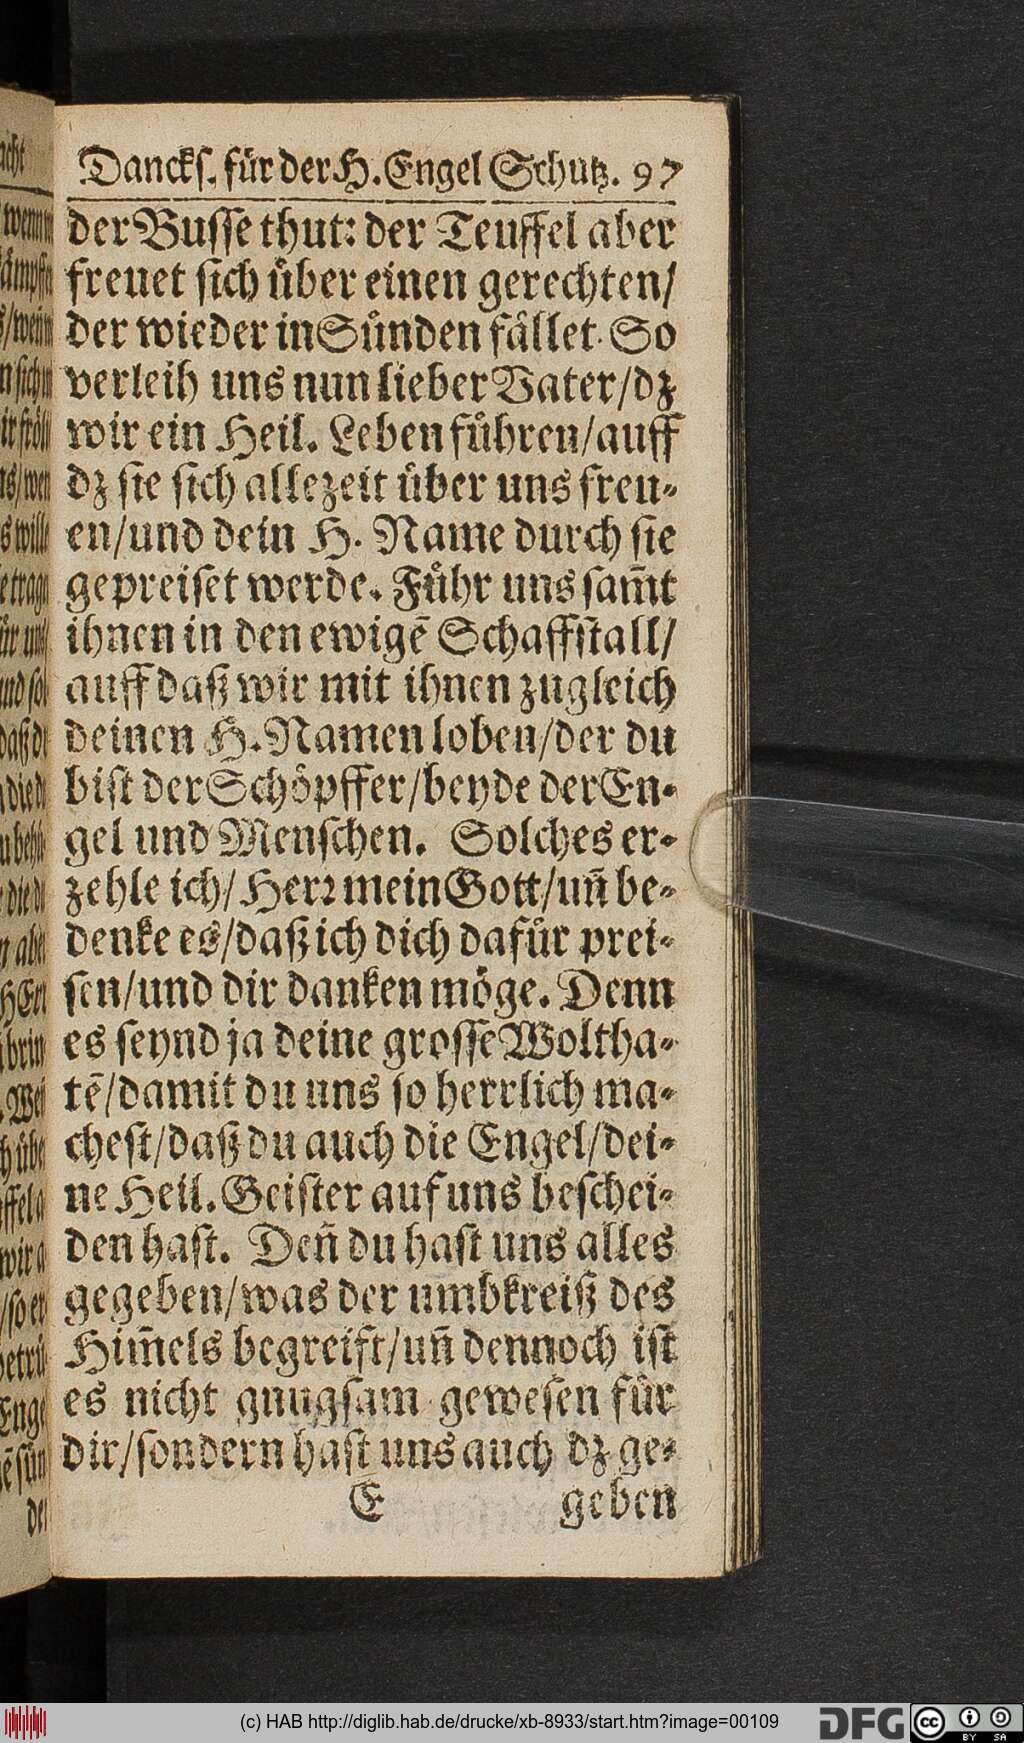 Dancks. für der H. Engel Schutz. 97
der Busse thut: der Teuffel aber
freuet sich über einen gerechten/
der wieder in Sünden fället. So
verleih uns nun lieber Vater/dz
wir ein Heil. Leben führen/auff
dz sie sich allezeit über uns freu-
en/und dein H. Name durch sie
gepreiset werde. Führ uns sam̃t
ihnen in den ewigē Schaffstall/
auff daß wir mit ihnen zugleich
deinen H. Namen loben/der du
bist der Schöpffer/beyde der En-
gel und Menschen. Solches er-
zehle ich/ Herr mein Gott/uñ be-
denke es/daß ich dich dafür prei-
sen/und dir danken möge. Denn
es seynd ja deine grosse Woltha-
tē/damit du uns so herrlich ma-
chest/daß du auch die Engel/dei-
ne Heil. Geister auf uns beschei-
den hast. Deñ du hast uns alles
gegeben/was der umbkreiß des
Him̃els begreift/uñ dennoch ist
es nicht gnugsam gewesen für
dir/sondern hast uns auch dz ge-
E geben
(c) HAB http://diglib.hab.de/drucke/xb-8933/start.htm?image=00109
DFG
cc BY SA